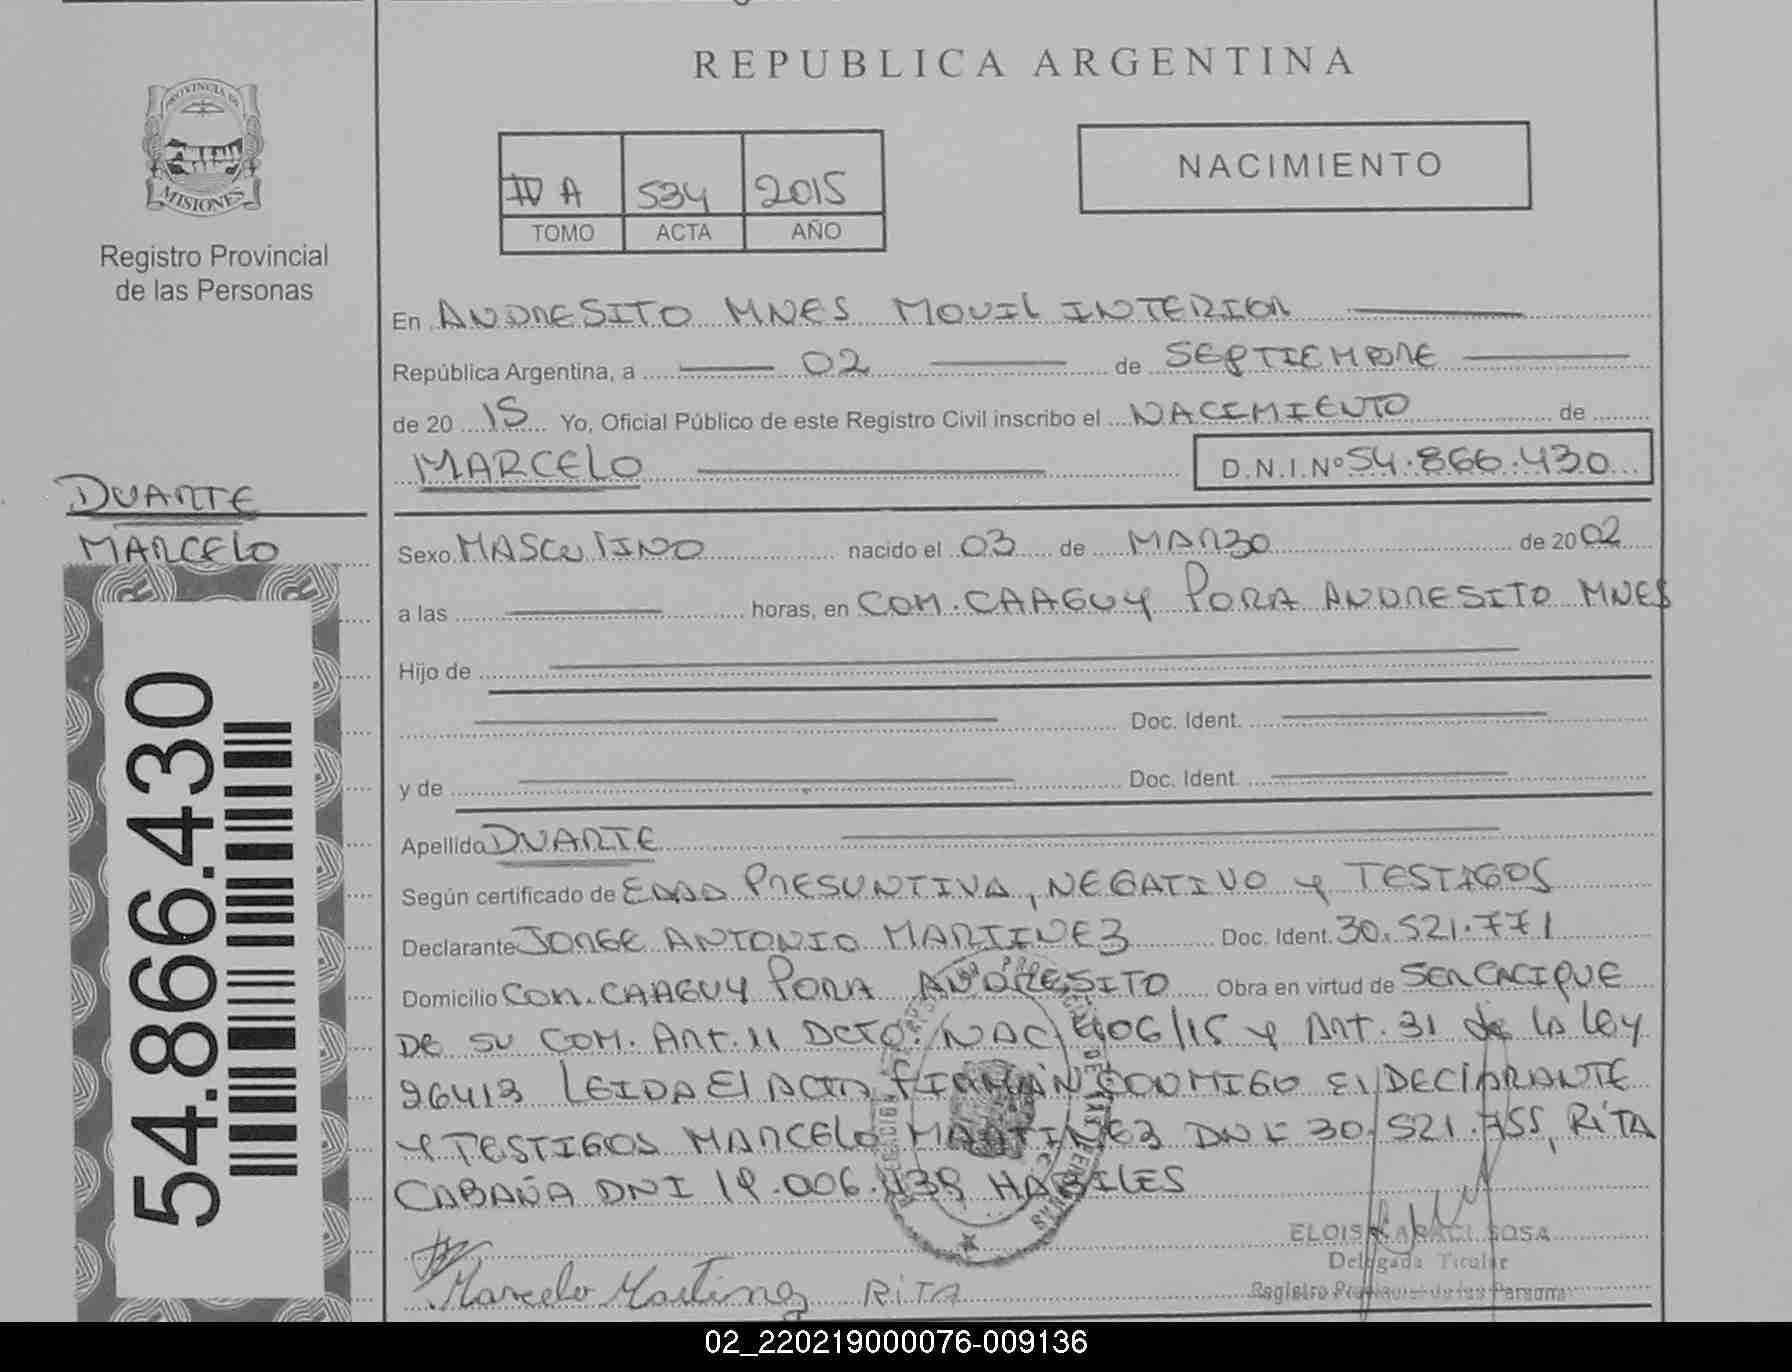 REPUBLICA ARGENTINA
PROVINCIA DE
MISIONES
Registro Provincial
de las Personas
IV A 534 2015
TOMO ACTA AÑO
NACIMIENTO
En ANDRESITO MNES MOVIL INTERIOR
República Argentina, a 02 de SEPTIEMBRE
de 20 15 Yo, Oficial Público de este Registro Civil inscribo el NACIMIENTO de
MARCELO D.N.I.Nº 54.866.430
DUARTE
MARCELO
54.866.430
Sexo MASCULINO nacido el 03 de MARZO de 20 02
a las horas, en COM. CAAGUY PORA ANDRESITO MNES
Hijo de
Doc. Ident.
y de Doc. Ident.
Apellido DUARTE
Según certificado de EDAD PRESUNTIVA, NEGATIVO y TESTIGOS
Declarante JORGE ANTONIO MARTINEZ Doc. Ident. 30.521.771
Domicilio COM. CAAGUY PORA ANDRESITO Obra en virtud de SER CACIQUE
DE SU COM. Art. 11 DCTO. NAC 406/15 y Art. 31 de la Ley
26413 LEIDA El ACTA FIRMAN CONMIGO El DECLARANTE
Y TESTIGOS MARCELO MARTINEZ DNI 30.521.755, RITA
CABAÑA DNI 19.006.439 HABILES
Marcelo Martinez RITA
ELOISA ARACI SOSA
Delegada Titular
Registro Provincial de las Personas
02_220219000076-009136